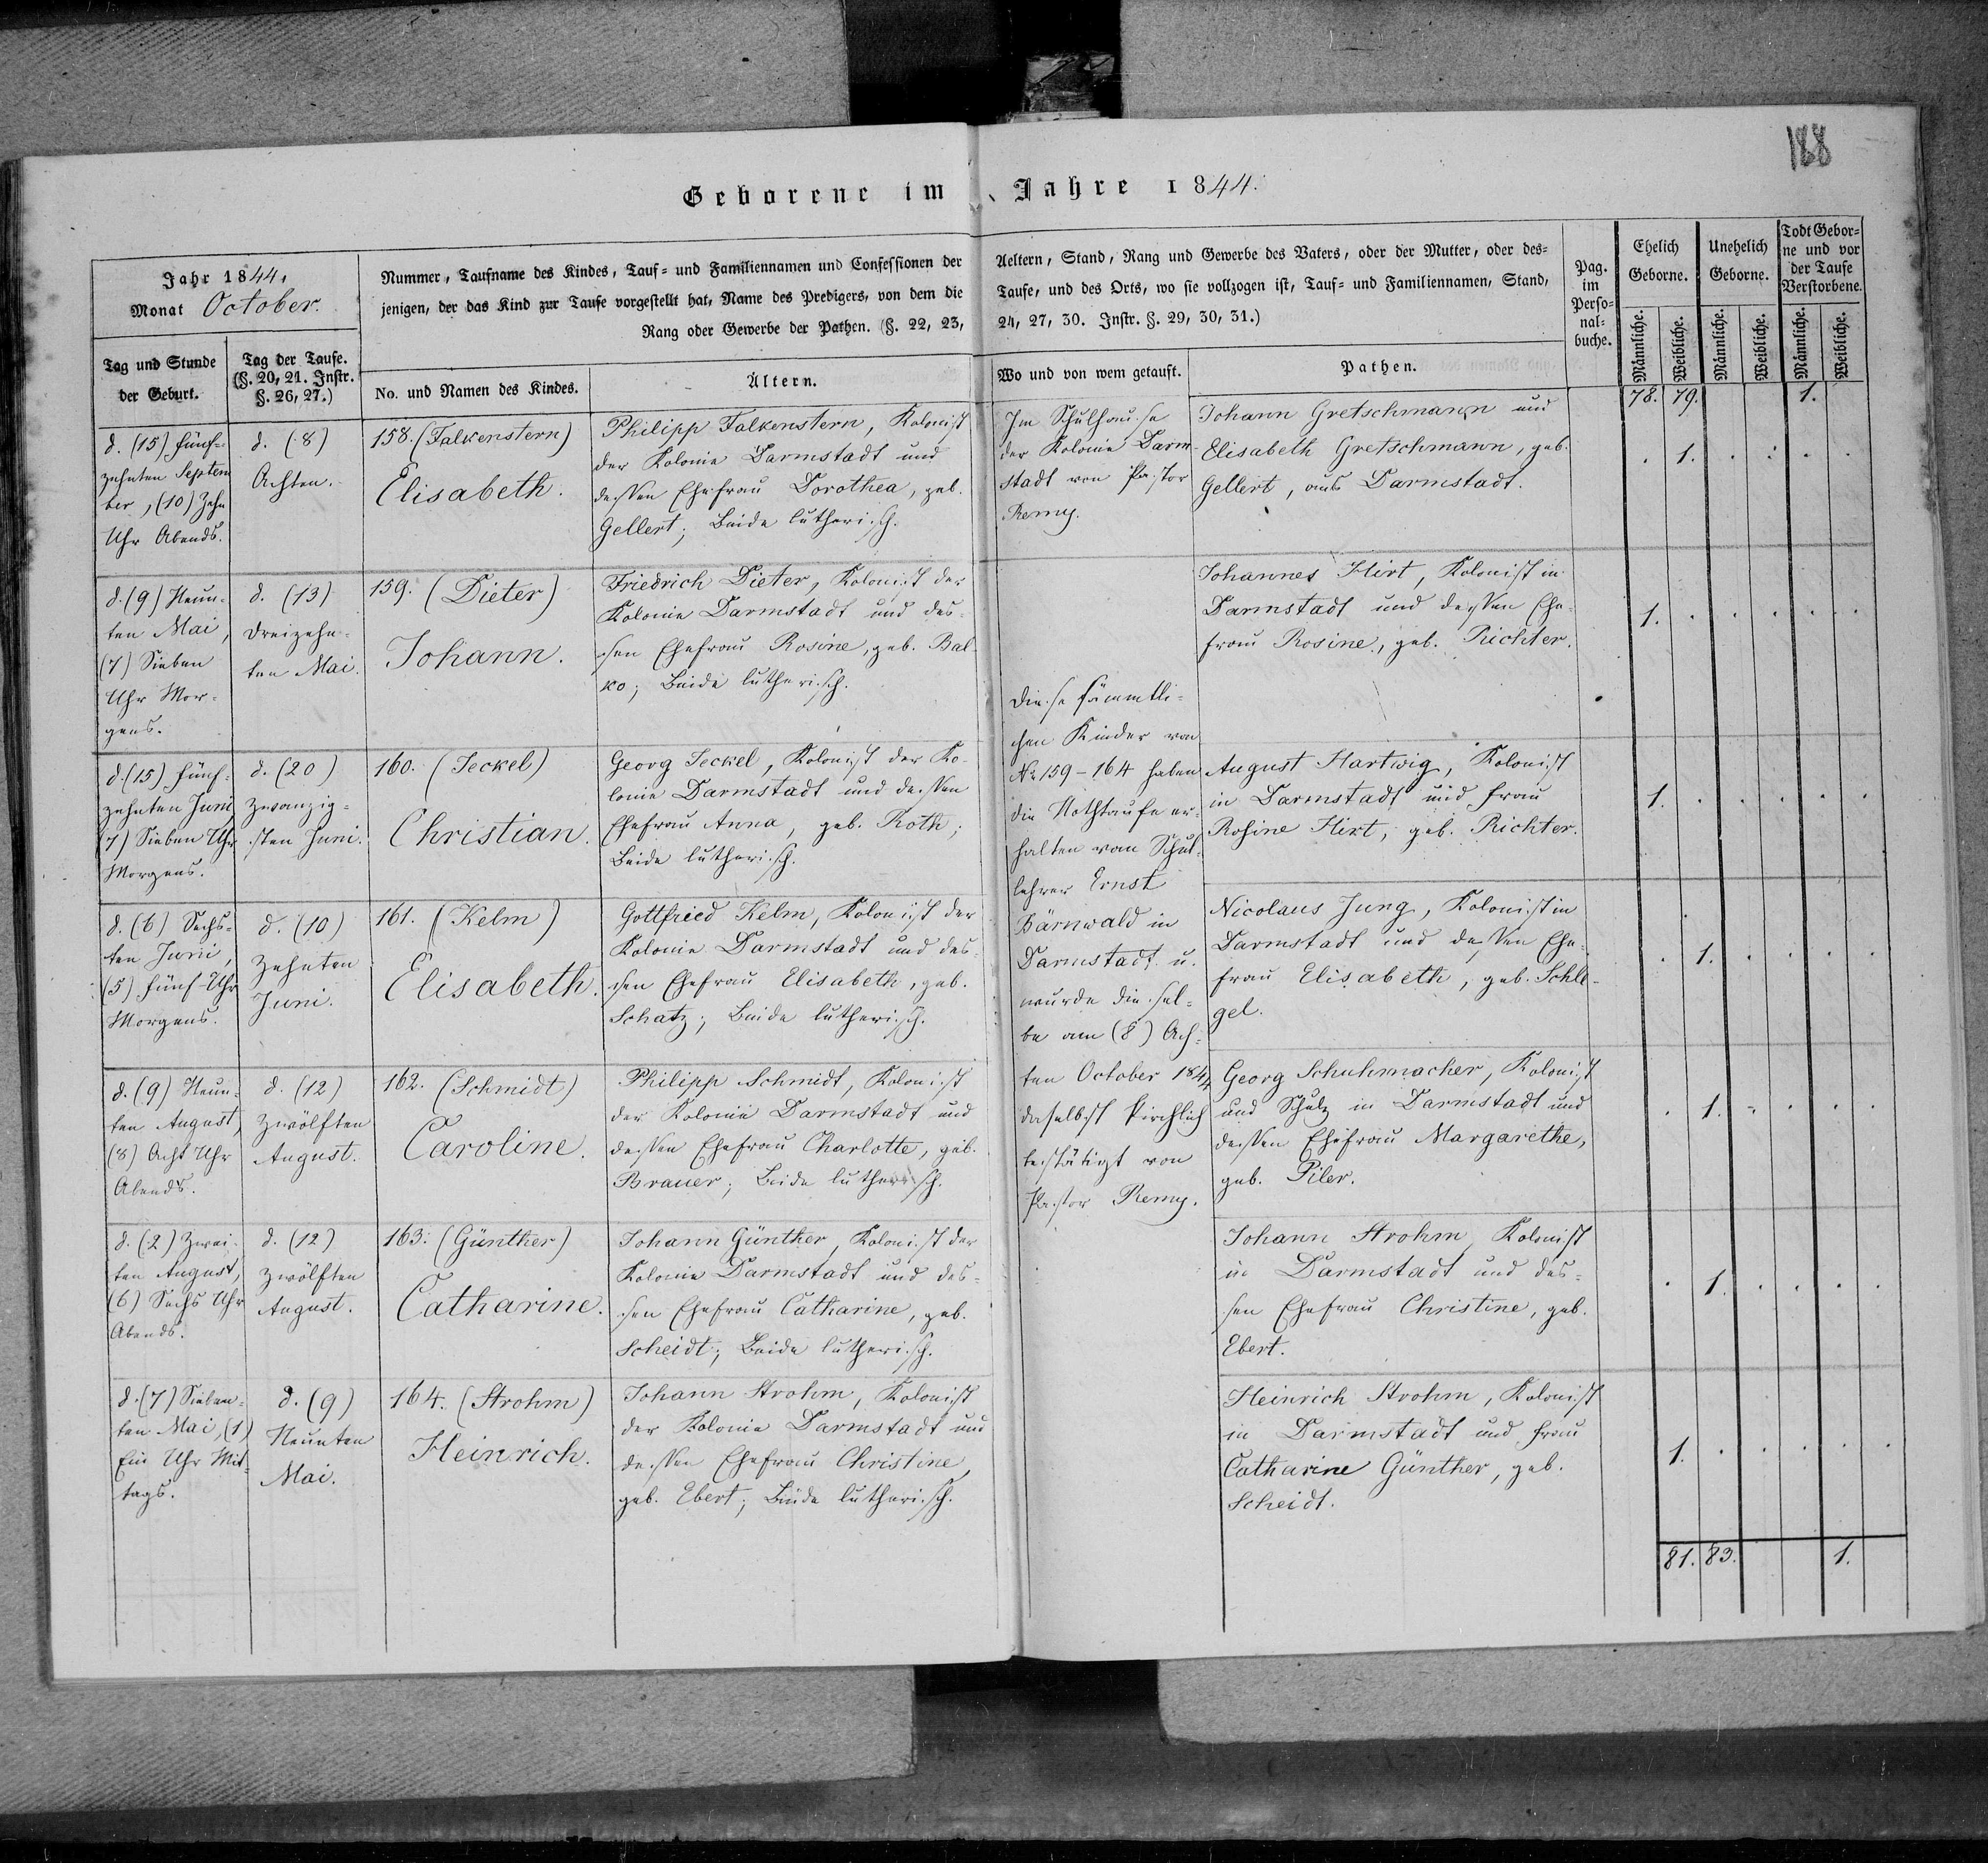 188
Geborene im Jahre 1844.
Jahr 1844.
Monat October.
Nummer, Taufname des Kindes, Tauf- und Familiennamen und Confessionen der
jenigen, der das Kind zur Taufe vorgestellt hat, Name des Predigers, von dem die
Rang oder Gewerbe der Pathen. (§. 22, 23,
Aeltern, Stand, Rang und Gewerbe des Vaters, oder der Mutter, oder des-
Taufe, und des Orts, wo sie vollzogen ist, Tauf- und Familiennamen, Stand,
24, 27, 30. Instr. §. 29, 30, 31.)
Pag.
im
Perso-
nal-
buche.
Ehelich
Geborne.
Unehelich
Geborne.
Todt Gebor-
ne und vor
der Taufe
Verstorbene.
Männliche.
Weibliche.
Männliche.
Weibliche.
Männliche.
Weibliche.
Tag und Stunde
der Geburt.
Tag der Taufe.
(§. 20, 21. Instr.
§. 26, 27.)
No. und Namen des Kindes.
Ältern.
Wo und von wem getauft.
Pathen.
78. 79. 1.
d. (15) fünf-
zehnten Septem
ber, (10) Zehn
Uhr Abends.
d. (8)
Achten.
158. (Falkenstern)
Elisabeth.
Philipp Falkenstern, Kolonist
der Kolonie Darmstadt und
dessen Ehefrau Dorothea, geb.
Gellert; Beide lutherisch.
Im Schulhause
der Kolonie Darm-
stadt von Pastor
Remy.
Johann Gretschmann und
Elisabeth Gretschmann, geb.
Gellert, aus Darmstadt.
1.
d. (9) Neun-
ten Mai,
(7) Sieben
Uhr Mor-
gens.
d. (13)
dreizehn-
ten Mai.
159. (Dieter)
Johann.
Friedrich Dieter, Kolonist der
Kolonie Darmstadt und des-
sen Ehefrau Rosine, geb. Bal-
ko; Beide lutherisch.
Johannes Hirt, Kolonist in
Darmstadt und dessen Ehe-
frau Rosine, geb. Richter.
1.
diese sämmtli-
chen Kinder von
No 159-164 haben
die Nothtaufe er-
halten vom Schul-
lehrer Ernst
Bärnwald in
Darmstadt u.
wurde diesel-
be am (8) Ach-
ten October 1844
daselbst kirchlich
bestätigt von
Pastor Remy.
d. (15) fünf-
zehnten Juni,
(7) Sieben Uhr
Morgens.
d. (20)
zwanzig-
sten Juni.
160. (Seckel)
Christian.
Georg Seckel, Kolonist der Ko-
lonie Darmstadt und dessen
Ehefrau Anna, geb. Roth;
Beide lutherisch.
August Hartwig, Kolonist
in Darmstadt und Frau
Rosine Hirt, geb. Richter.
1.
d. (6) Sechs-
ten Juni,
(5) fünf Uhr
Morgens.
d. (10)
Zehnten
Juni.
161. (Kelm)
Elisabeth.
Gottfried Kelm, Kolonist der
Kolonie Darmstadt und des-
sen Ehefrau Elisabeth, geb.
Schatz; Beide lutherisch.
Nicolaus Jung, Kolonist in
Darmstadt und dessen Ehe-
frau Elisabeth, geb. Schle-
gel.
1.
d. (9) Neun-
ten August,
(8) Acht Uhr
Abends.
d. (12)
zwölften
August.
162. (Schmidt)
Caroline.
Philipp Schmidt, Kolonist
der Kolonie Darmstadt und
dessen Ehefrau Charlotte, geb.
Brauer; Beide lutherisch.
Georg Schuhmacher, Kolonist
und Schulz in Darmstadt und
dessen Ehefrau Margarethe,
geb. Piler.
1.
d. (2) Zwei-
ten August,
(6) Sechs Uhr
Abends.
d. (12)
zwölften
August.
163. (Günther)
Catharine.
Johann Günther, Kolonist der
Kolonie Darmstadt und des-
sen Ehefrau Catharine, geb.
Scheidt; Beide lutherisch.
Johann Strohm, Kolonist
in Darmstadt und des-
sen Ehefrau Christine, geb.
Ebert.
1.
d. (7) Sieben-
ten Mai, (1)
Ein Uhr Mit-
tags.
d. (9)
Neunten
Mai.
164. (Strohm)
Heinrich.
Johann Strohm, Kolonist
der Kolonie Darmstadt und
dessen Ehefrau Christine,
geb. Ebert; Beide lutherisch.
Heinrich Strohm, Kolonist
in Darmstadt und Frau
Catharine Günther, geb.
Scheidt.
1.
81. 83. 1.